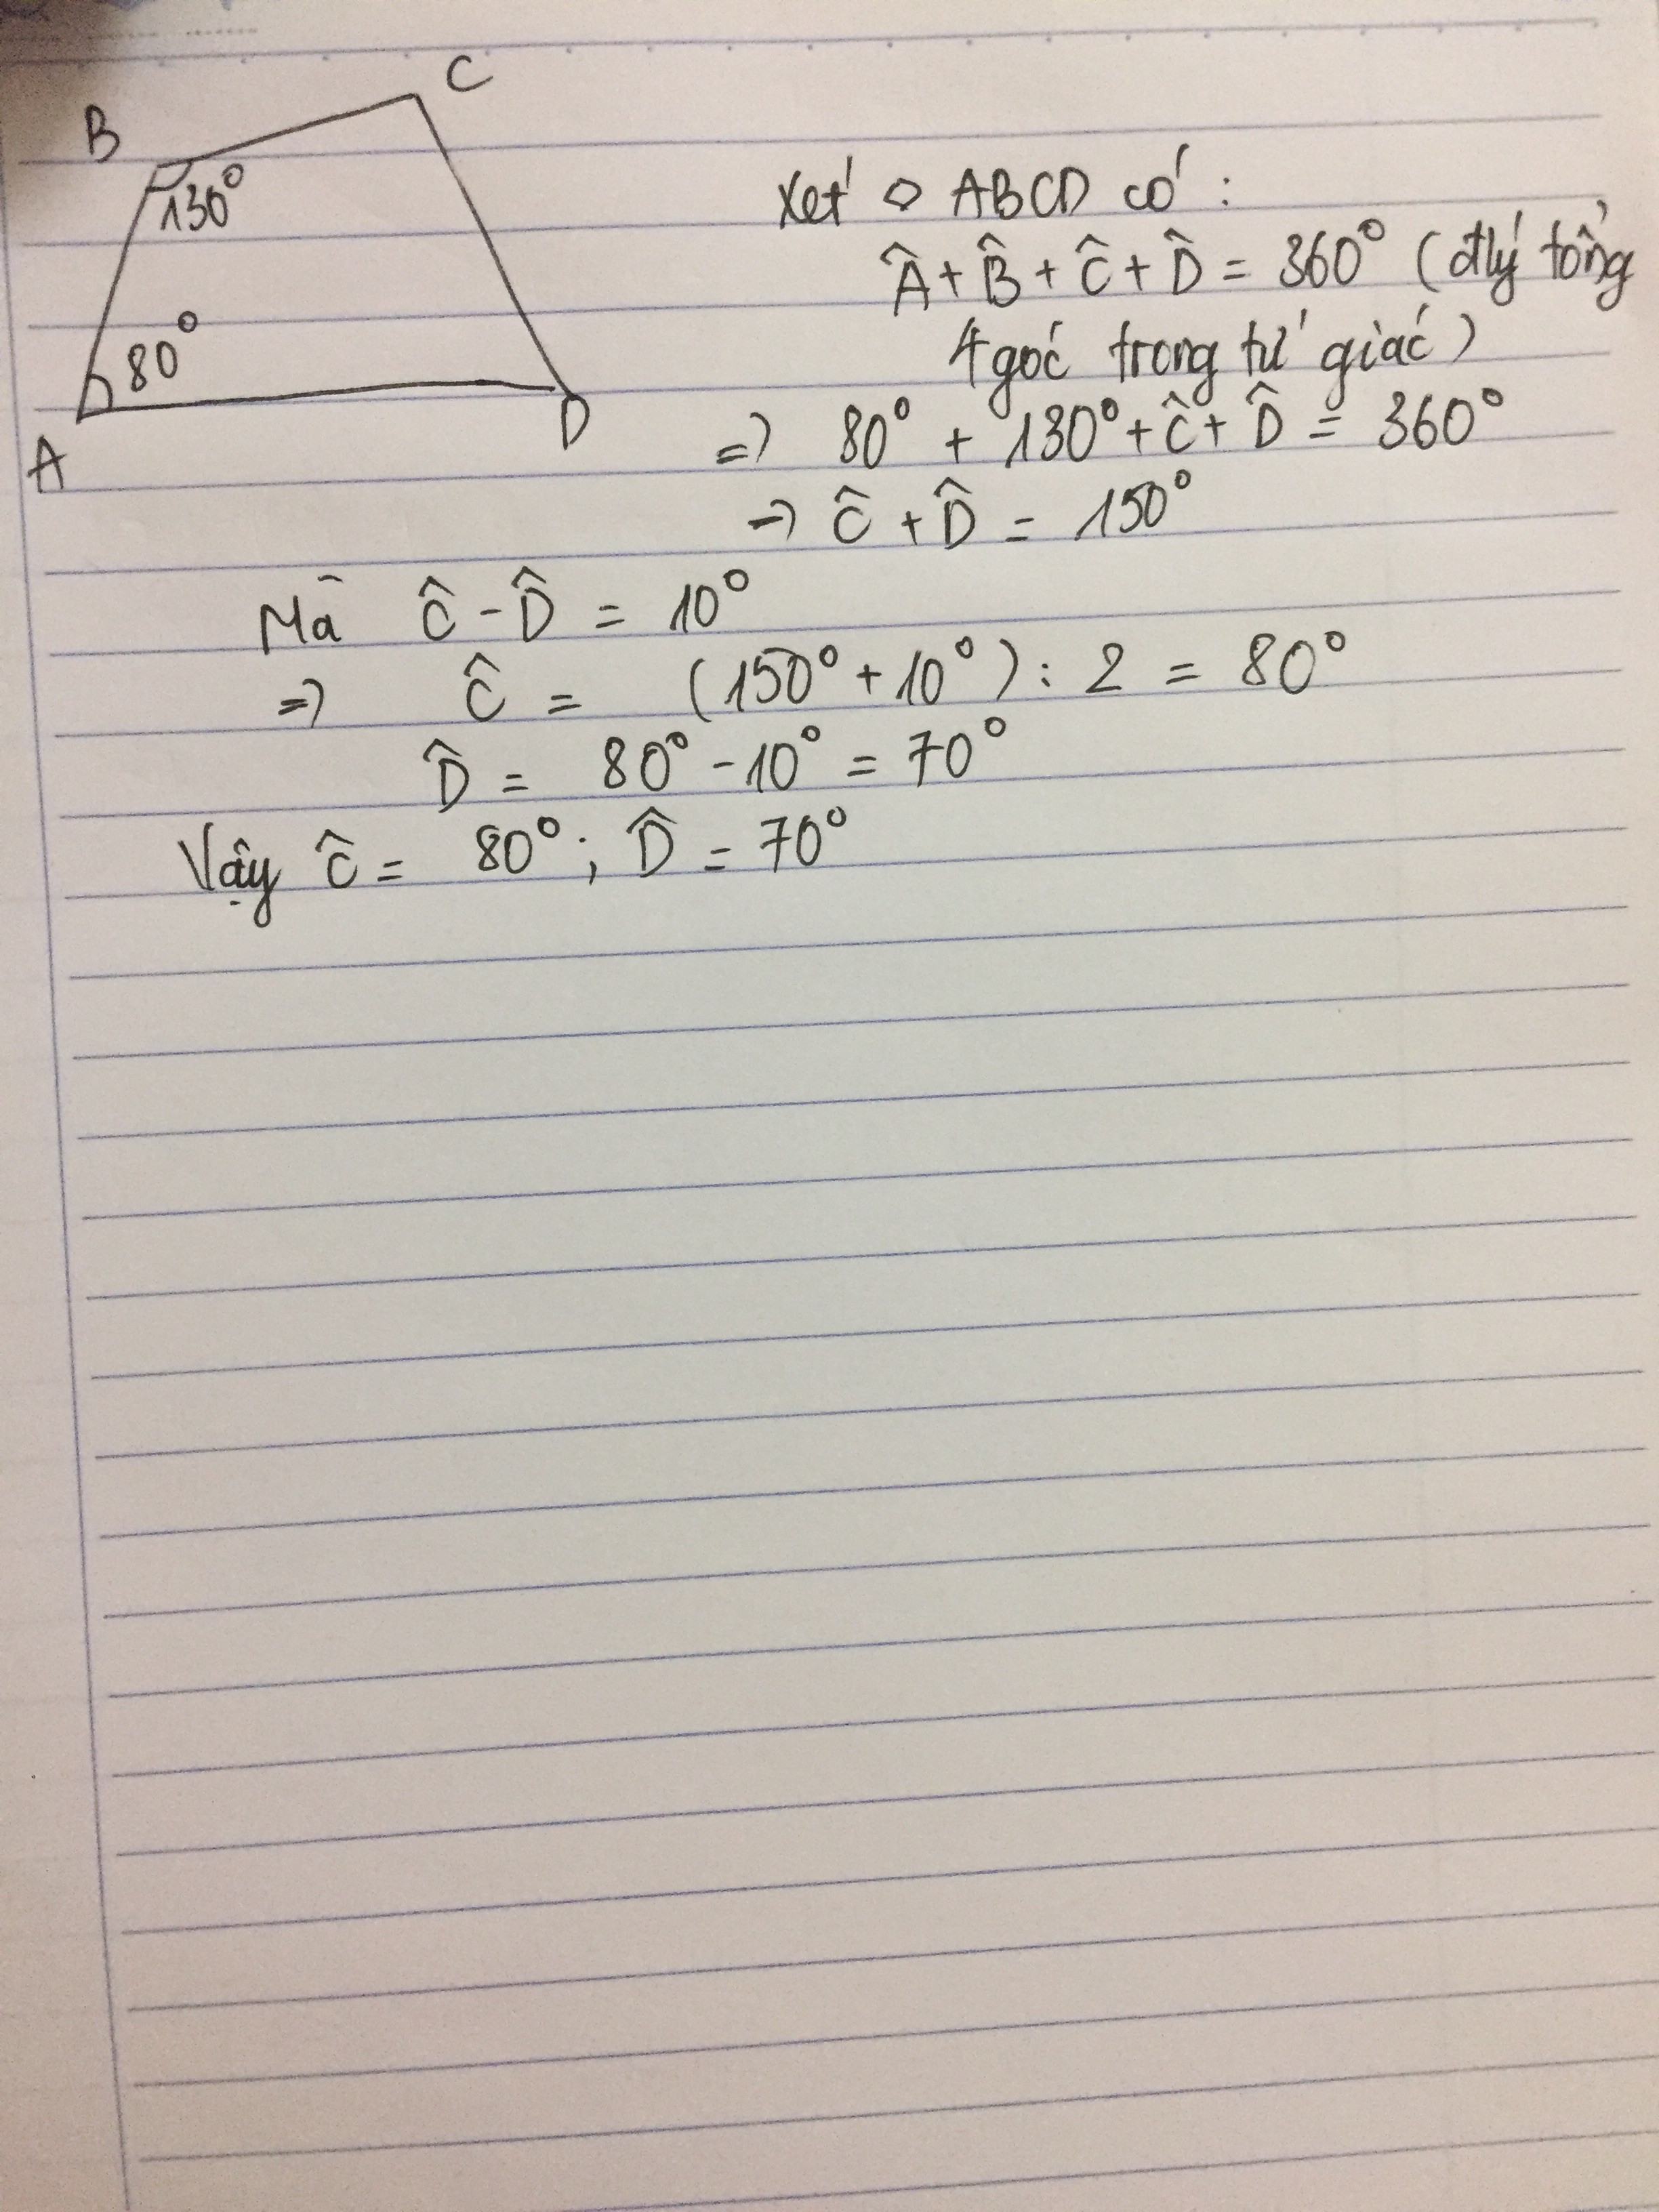 C
B
130°
80°
A
D
Xét ◇ ABCD có :
Â + B̂ + Ĉ + D̂ = 360° (đlý tổng
4 góc trong tứ giác)
=> 80° + 130° + Ĉ + D̂ = 360°
-> Ĉ + D̂ = 150°
Mà Ĉ - D̂ = 10°
=> Ĉ = (150° + 10°) : 2 = 80°
D̂ = 80° - 10° = 70°
Vậy Ĉ = 80° ; D̂ = 70°